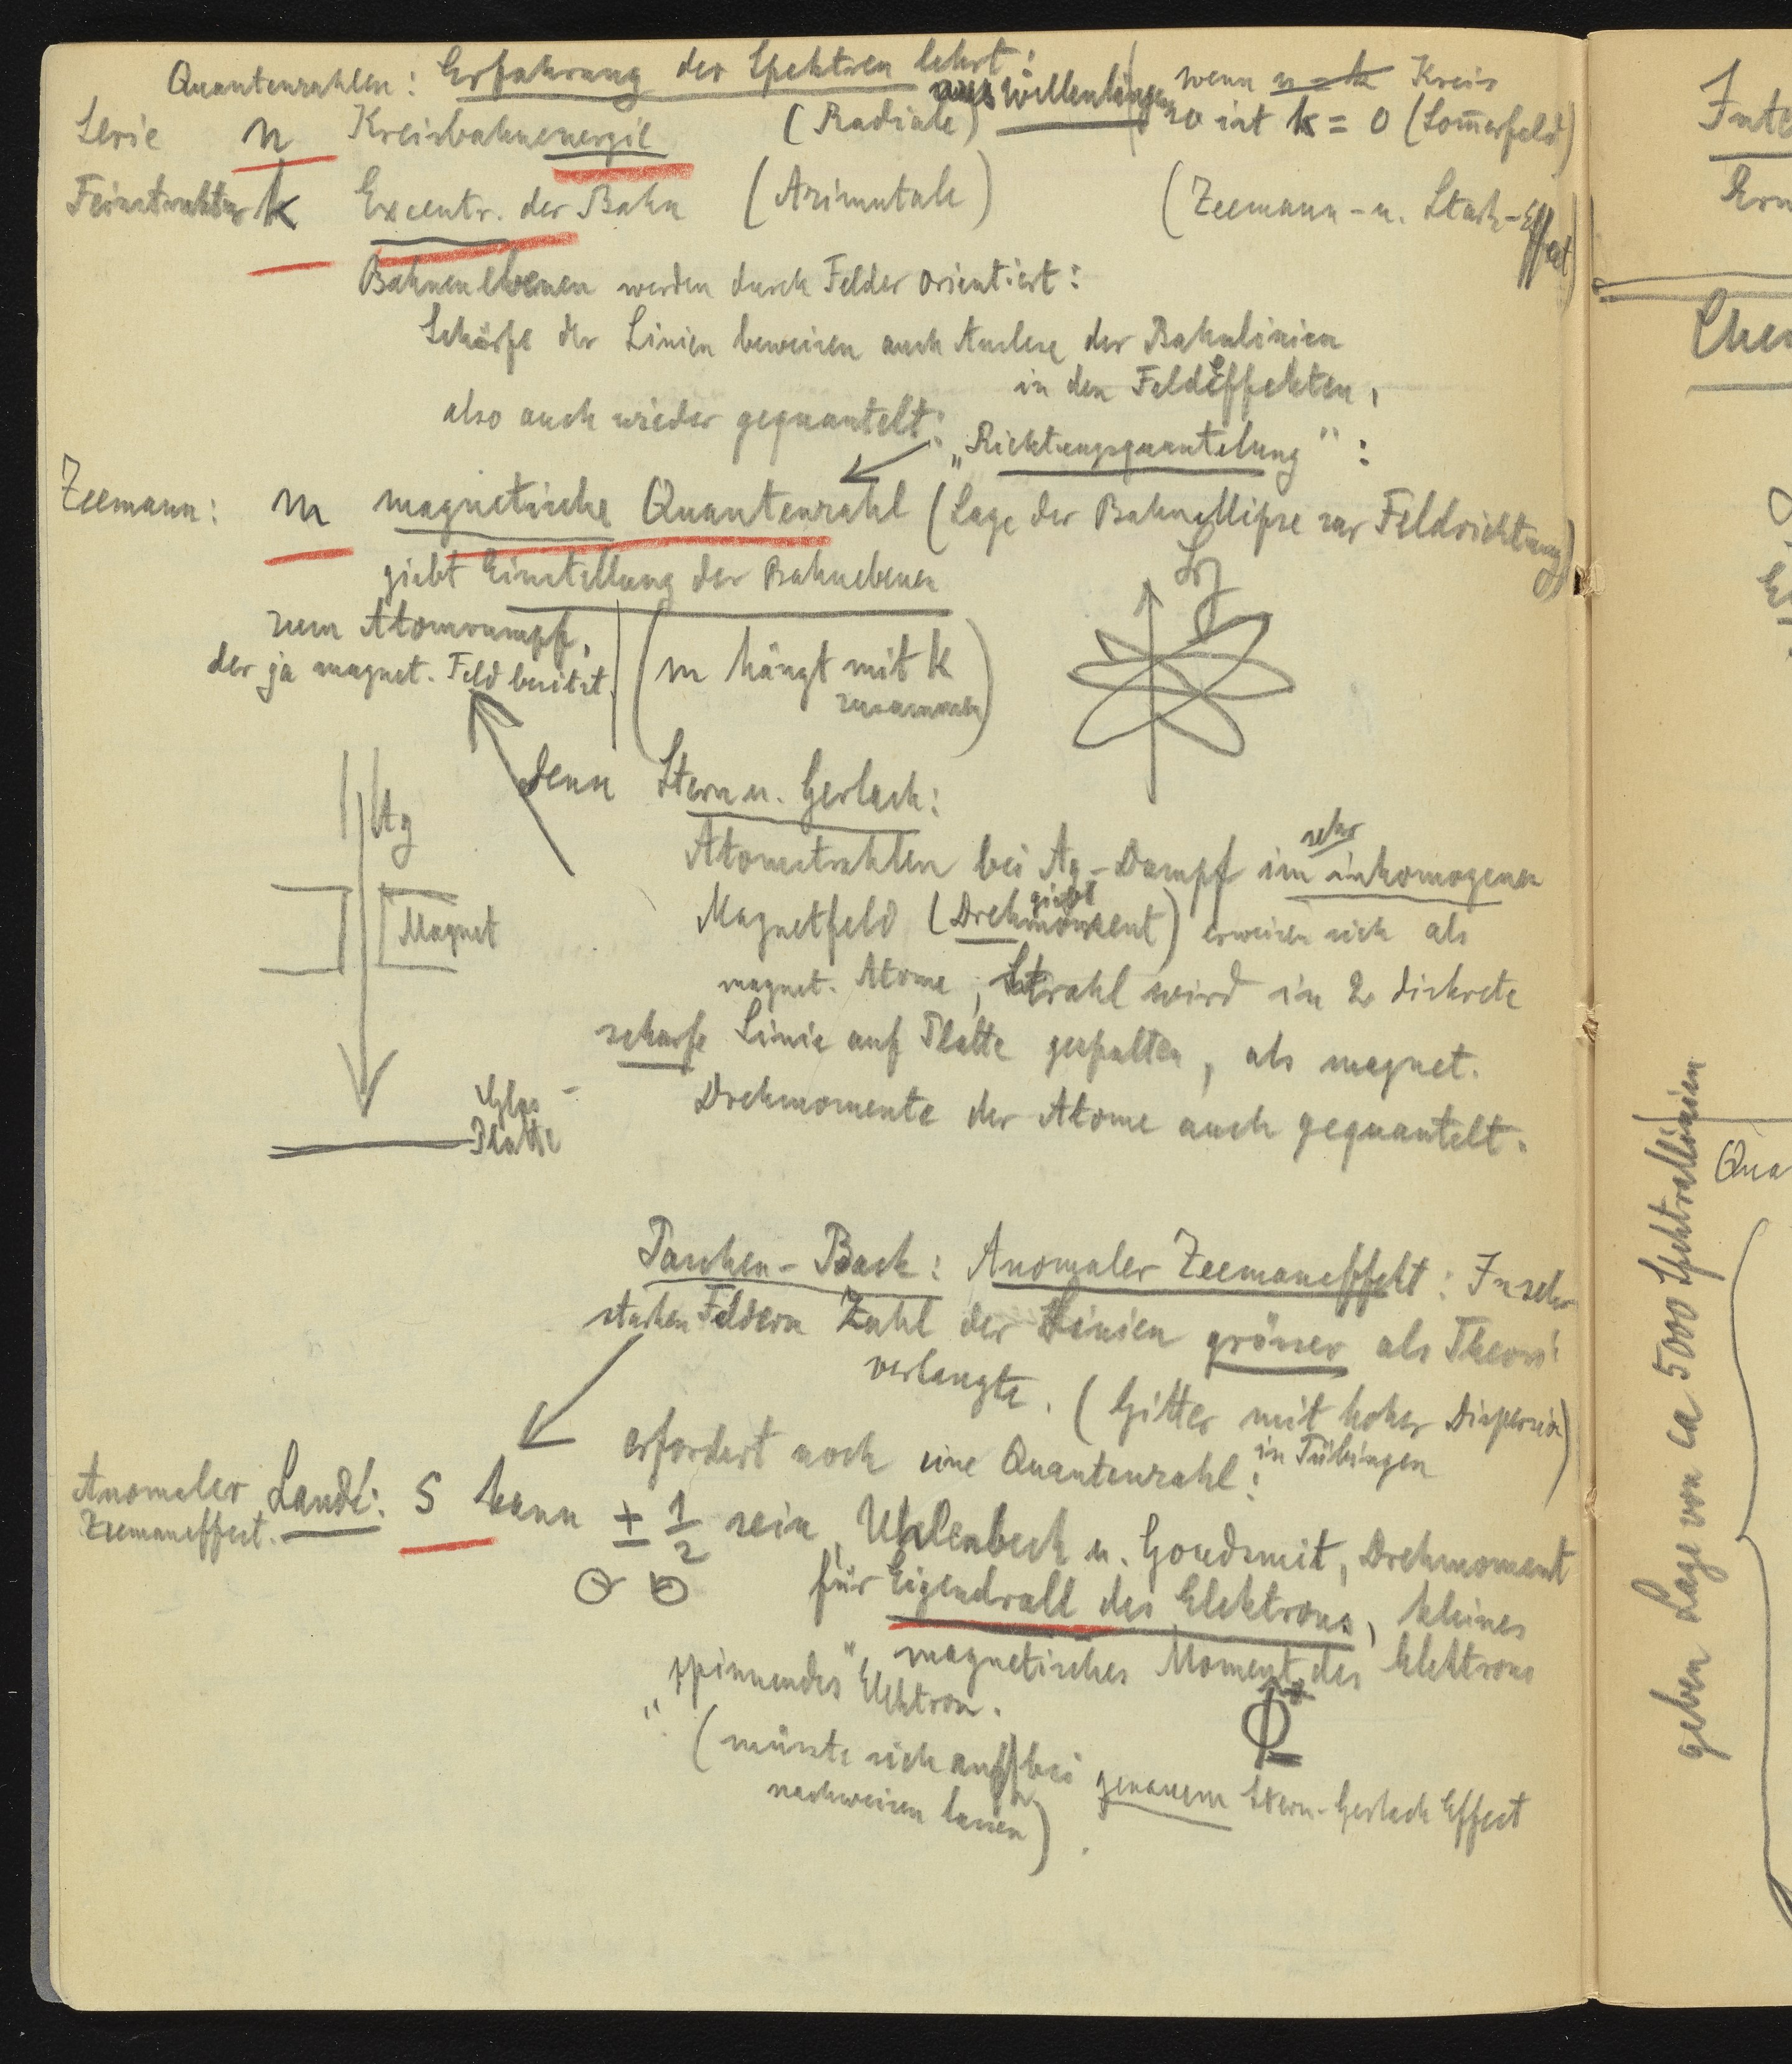 Quantenzahlen: Erfahrung der Spektren lehrt:
aus Wellenlängen
wenn n = k Kreis
Serie n Kreisbahnenergie (Radiale)
so ist k = 0 (Som̅erfeld)
Feinstruktur k Excentr. der Bahn (Azimutale) (Zeemann- u. Stark-Effect)
Bahnenebenen werden durch Felder orientiert:
Schärfe der Linien beweisen auch Auslese der Bahnlinien
in den Feldeffekten,
also auch wieder gequantelt:
„Richtungsquantelung":
Zeemann: m magnetische Quantenzahl (Lage der Bahnellipse zur Feldrichtung)
giebt Einstellung der Bahnebenen
zum Atomrumpf,
der ja magnet. Feld besitzt.
(m hängt mit k
zusammen)
denn Stern u. Gerlach:
Ag
Magnet
Glas-
Platte
Atomstrahlen bei Ag-Dampf im sehr inhomogenen
Magnetfeld (giebt Drehmoment) erweisen sich als
magnet. Atome, Strahl wird in 2 diskrete
scharfe Linie auf Platte gespalten, als magnet.
Drehmomente der Atome auch gequantelt.
Paschen-Back: Anomaler Zeemaneffekt: In sehr
starken Feldern Zahl der Linien grösser als Theori
verlangte. (Gitter mit hoher Dispersion)
in Tübingen
erfordert noch eine Quantenzahl:
Anomaler
Zeemaneffect.
Landé: s kann ± 1/2 sein, Uhlenbeck u. Goudsmit, Drehmoment
für Eigendrall des Elektrons, kleines
magnetisches Moment des Elektrons
„spinnendes" Elektron.
(müsste sich auch bei genauem Stern-Gerlach Effect
nachweisen lassen).
geben Lage von ca 5000 Spektrallinien
Qua